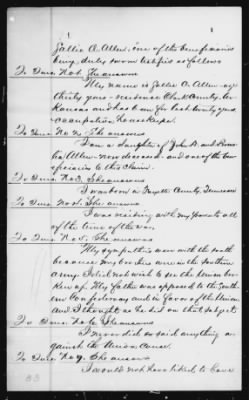 Sallie A. Allen, one of the beneficiaries
being duly sworn testifies as follows
To Inte. No 1. She answers
My name is Sallie A. Allen - age
thirty years - residence Clark County, Ar-
kansas and has been for last twenty years,
occupation housekeeper.
To Inte. No 2. She answers
I am a daughter of John A. and
Allen - now deceased - and one of the ben-
eficiaries to this claim.
To Inte. No 3. She answers
I was born in Fayette County, Tennessee
To Inte. No 4. She answers
I was residing with my parents all
of the time of the war.
To Inte. No 5. She answers
My sympathies were with the south
because my brothers were in the southern
army. I did not wish to see the Union bro-
ken up. My father was opposed to the South-
ern Confederacy and in favor of the Union
and I thought as he did on that subject.
To Inte. No 6. She answers
I never did or said anything a-
gainst the Union cause.
To Inte. No 7. She answers
I would not have liked to have